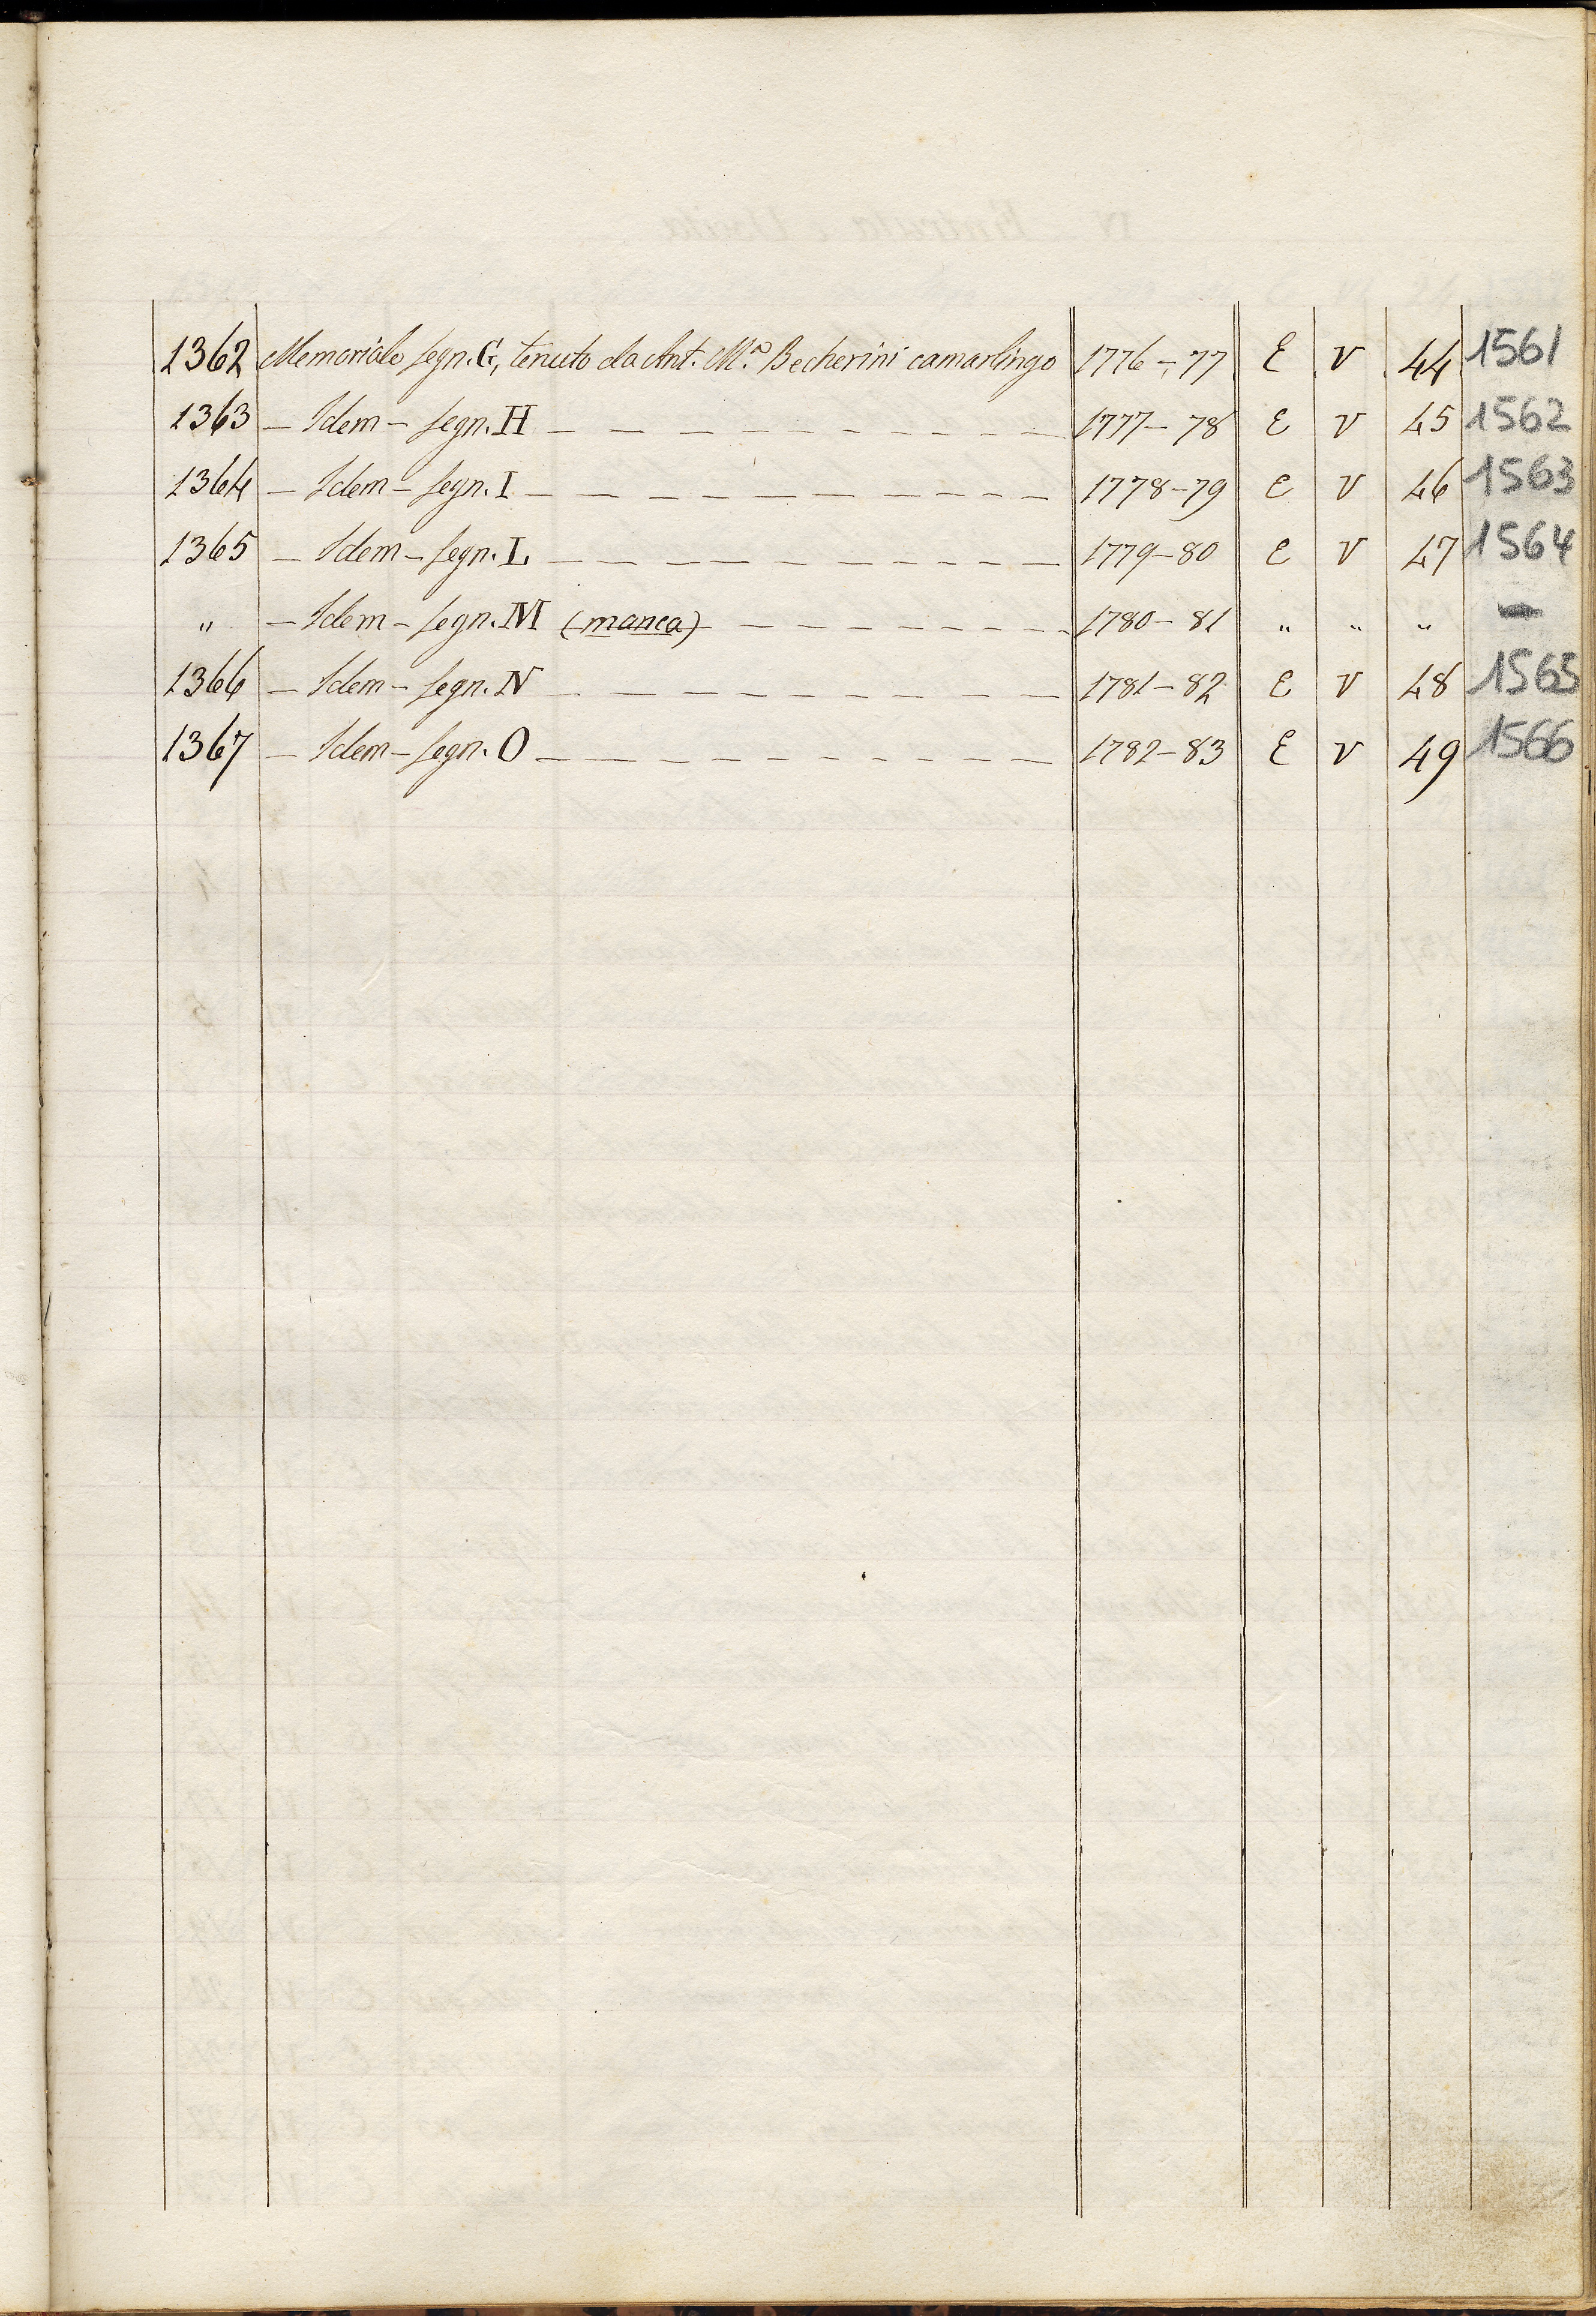 1362 Memoriale segn. G, tenuto da Ant. M.ª Becherini camarlingo 1776-77 E V 44 1561
1363 — Idem — segn. H — — — — — — — — — — — — 1777-78 E V 45 1562
1364 — Idem — segn. I — — — — — — — — — — — — — 1778-79 E V 46 1563
1365 — Idem — segn. L — — — — — — — — — — — — 1779-80 E V 47 1564
" — Idem — segn. M (manca) — — — — — — — — — 1780-81 " " " —
1366 — Idem — segn. N — — — — — — — — — — — — 1781-82 E V 48 1565
1367 — Idem — segn. O — — — — — — — — — — — — — 1782-83 E V 49 1566